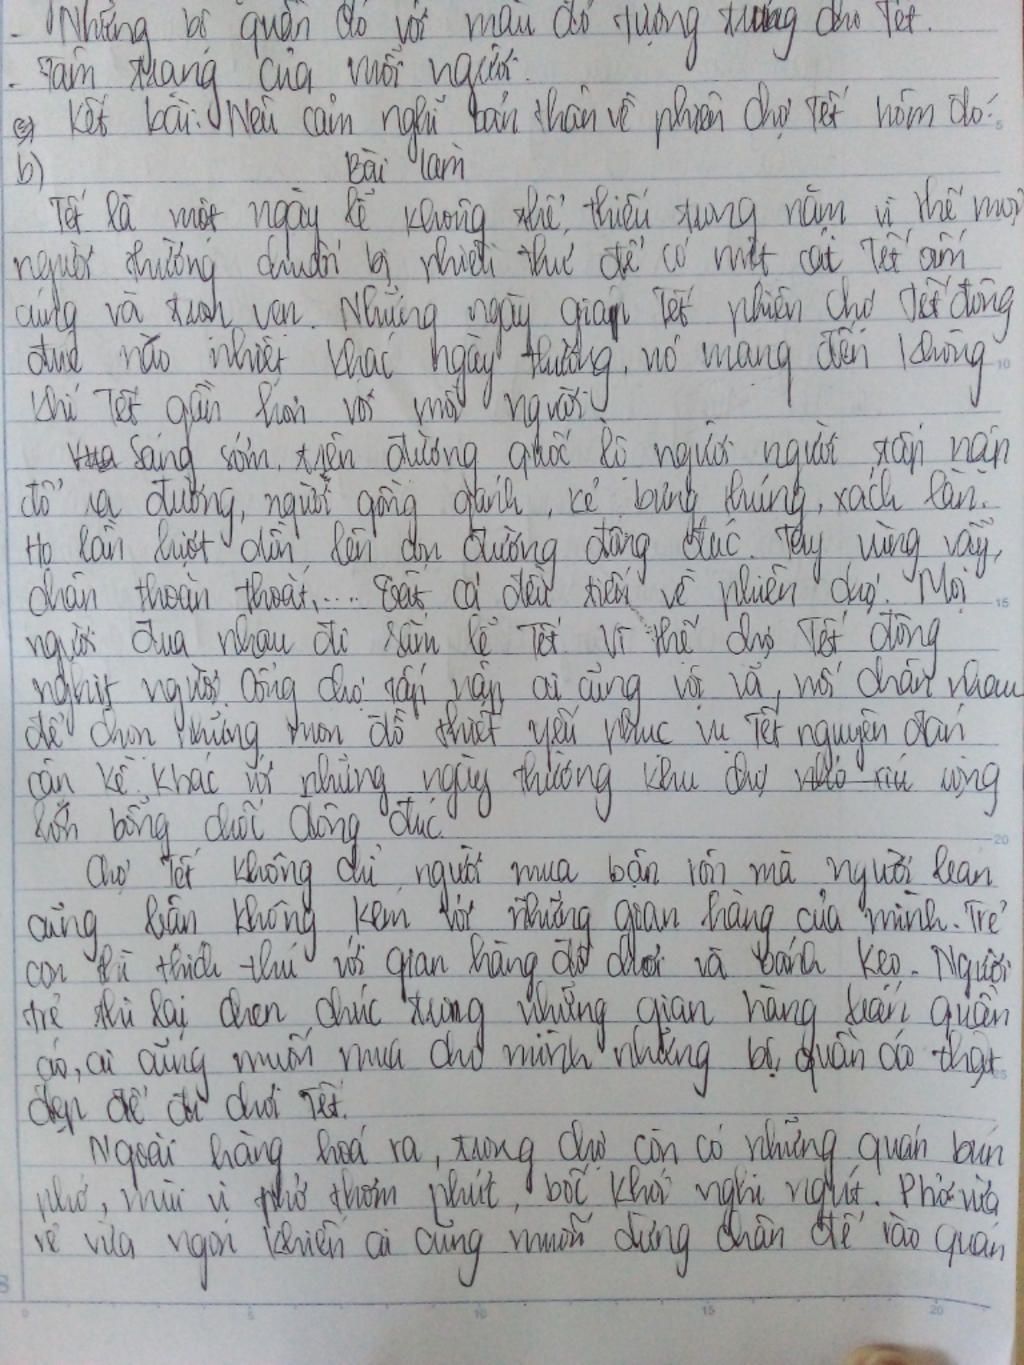 - Những bộ quần đỏ với màu đỏ tượng trưng cho Tết.
- Tâm trạng của mỗi người.
Kết bài: Nêu cảm nghĩ bản thân về phiên chợ Tết hôm đó.
b) Bài làm
Tết là một ngày lễ không thể thiếu trong năm vì thế mọi
người thường chuẩn bị nhiều thứ để có một cái Tết ấm
cúng và trọn vẹn. Những ngày giáp Tết phiên chợ Tết đông
đúc náo nhiệt khác ngày thường, nó mang đến không
khí Tết gần hơn với mọi người.
Sáng sớm, trên đường quốc lộ người người tấp nập
đổ ra đường, người gồng gánh, kẻ bưng thúng, xách làn.
Họ lần lượt dồn lên con đường đông đúc. Tay vùng vẫy,
chân thoăn thoắt,.... Tất cả đều tiến về phiên chợ. Mọi
người đua nhau đi sắm lễ Tết vì thế chợ Tết đông
nghịt người. Cổng chợ tấp nập ai cũng vội vã, nối chân nhau
để chọn những món đồ thiết yếu phục vụ Tết nguyên đán
cận kề. Khác với những ngày thường khu chợ rộng
lớn bỗng chốc đông đúc.
Chợ Tết không chỉ người mua bận rộn mà người bán
cũng bận không kém với những gian hàng của mình. Trẻ
con thì thích thú với gian hàng đồ chơi và bánh kẹo. Người
trẻ thì lại chen chúc trong những gian hàng bán quần
áo, ai cũng muốn mua cho mình những bộ quần áo thật
đẹp để đi chơi Tết.
Ngoài hàng hoá ra, trong chợ còn có những quán bún
phở, mùi vị phở thơm phức, bốc khói nghi ngút. Phở vừa
rẻ vừa ngon khiến ai cũng muốn dừng chân để vào quán